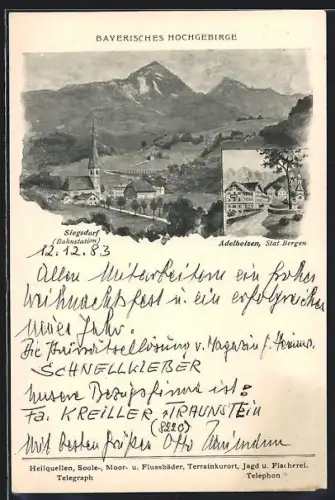 BAYERISCHES HOCHGEBIRGE
Siegsdorf
(Bahnstation)
Adelholzen, Stat. Bergen
12.12.83
Allen Mitarbeitern ein frohes
Weihnachtsfest u. ein erfolgreiches
neues Jahr.
Die Preisrätsellösung v. Magazin f. Heimw.
SCHNELLKLEBER
unsere Bezugsfirma ist:
Fa. KREILLER, TRAUNSTEIN
(8220)
Mit besten Grüßen Otto
Heilquellen, Soole-, Moor- u. Flussbäder, Terrainkurort, Jagd u. Fischerei.
Telegraph
Telephon